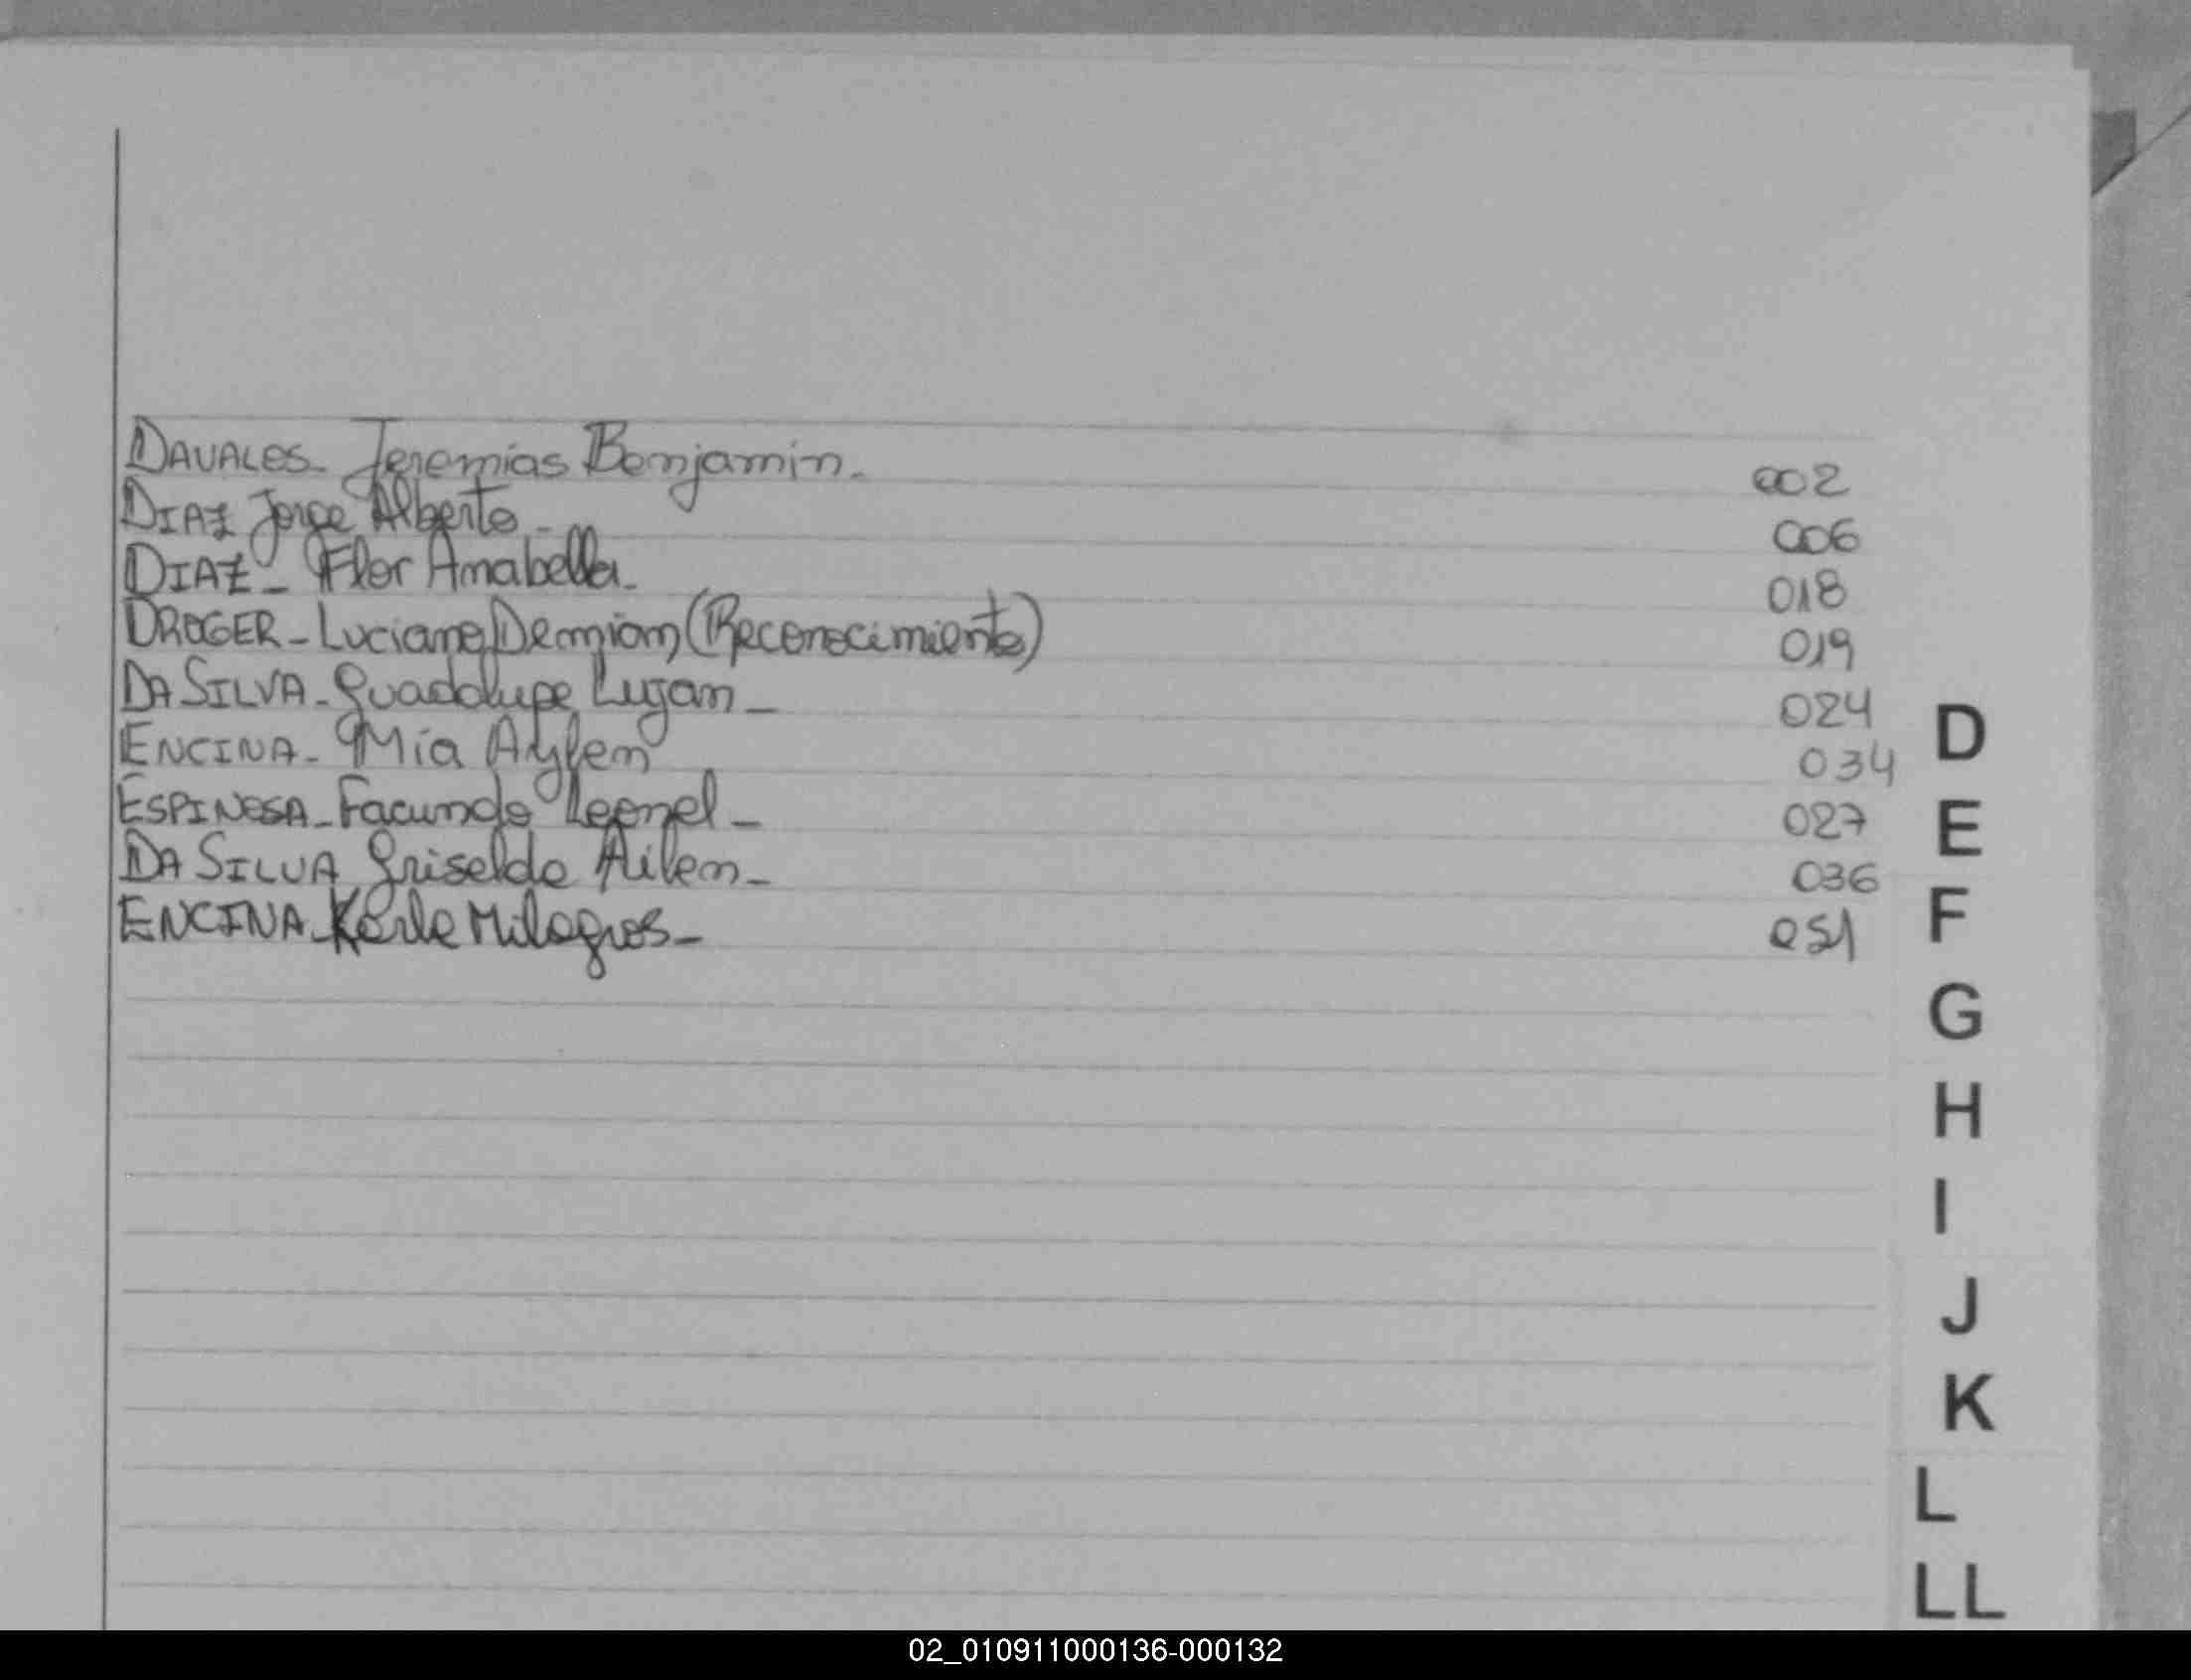 DAVALOS- Jeremías Benjamin- 002
DIAZ Jorge Alberto- 006
DIAZ- Flor Anabella- 018
DROGER- Luciano Demian (Reconocimiento) 019
DA SILVA- Guadalupe Lujan- 024
D
ENCINA- Mía Aylen 034
ESPINOSA- Facundo Leonel- 027
E
DA SILVA Griselda Ailen- 036
F
ENCINA- Karla Milagros- 051
G
H
I
J
K
L
LL
02_010911000136-000132